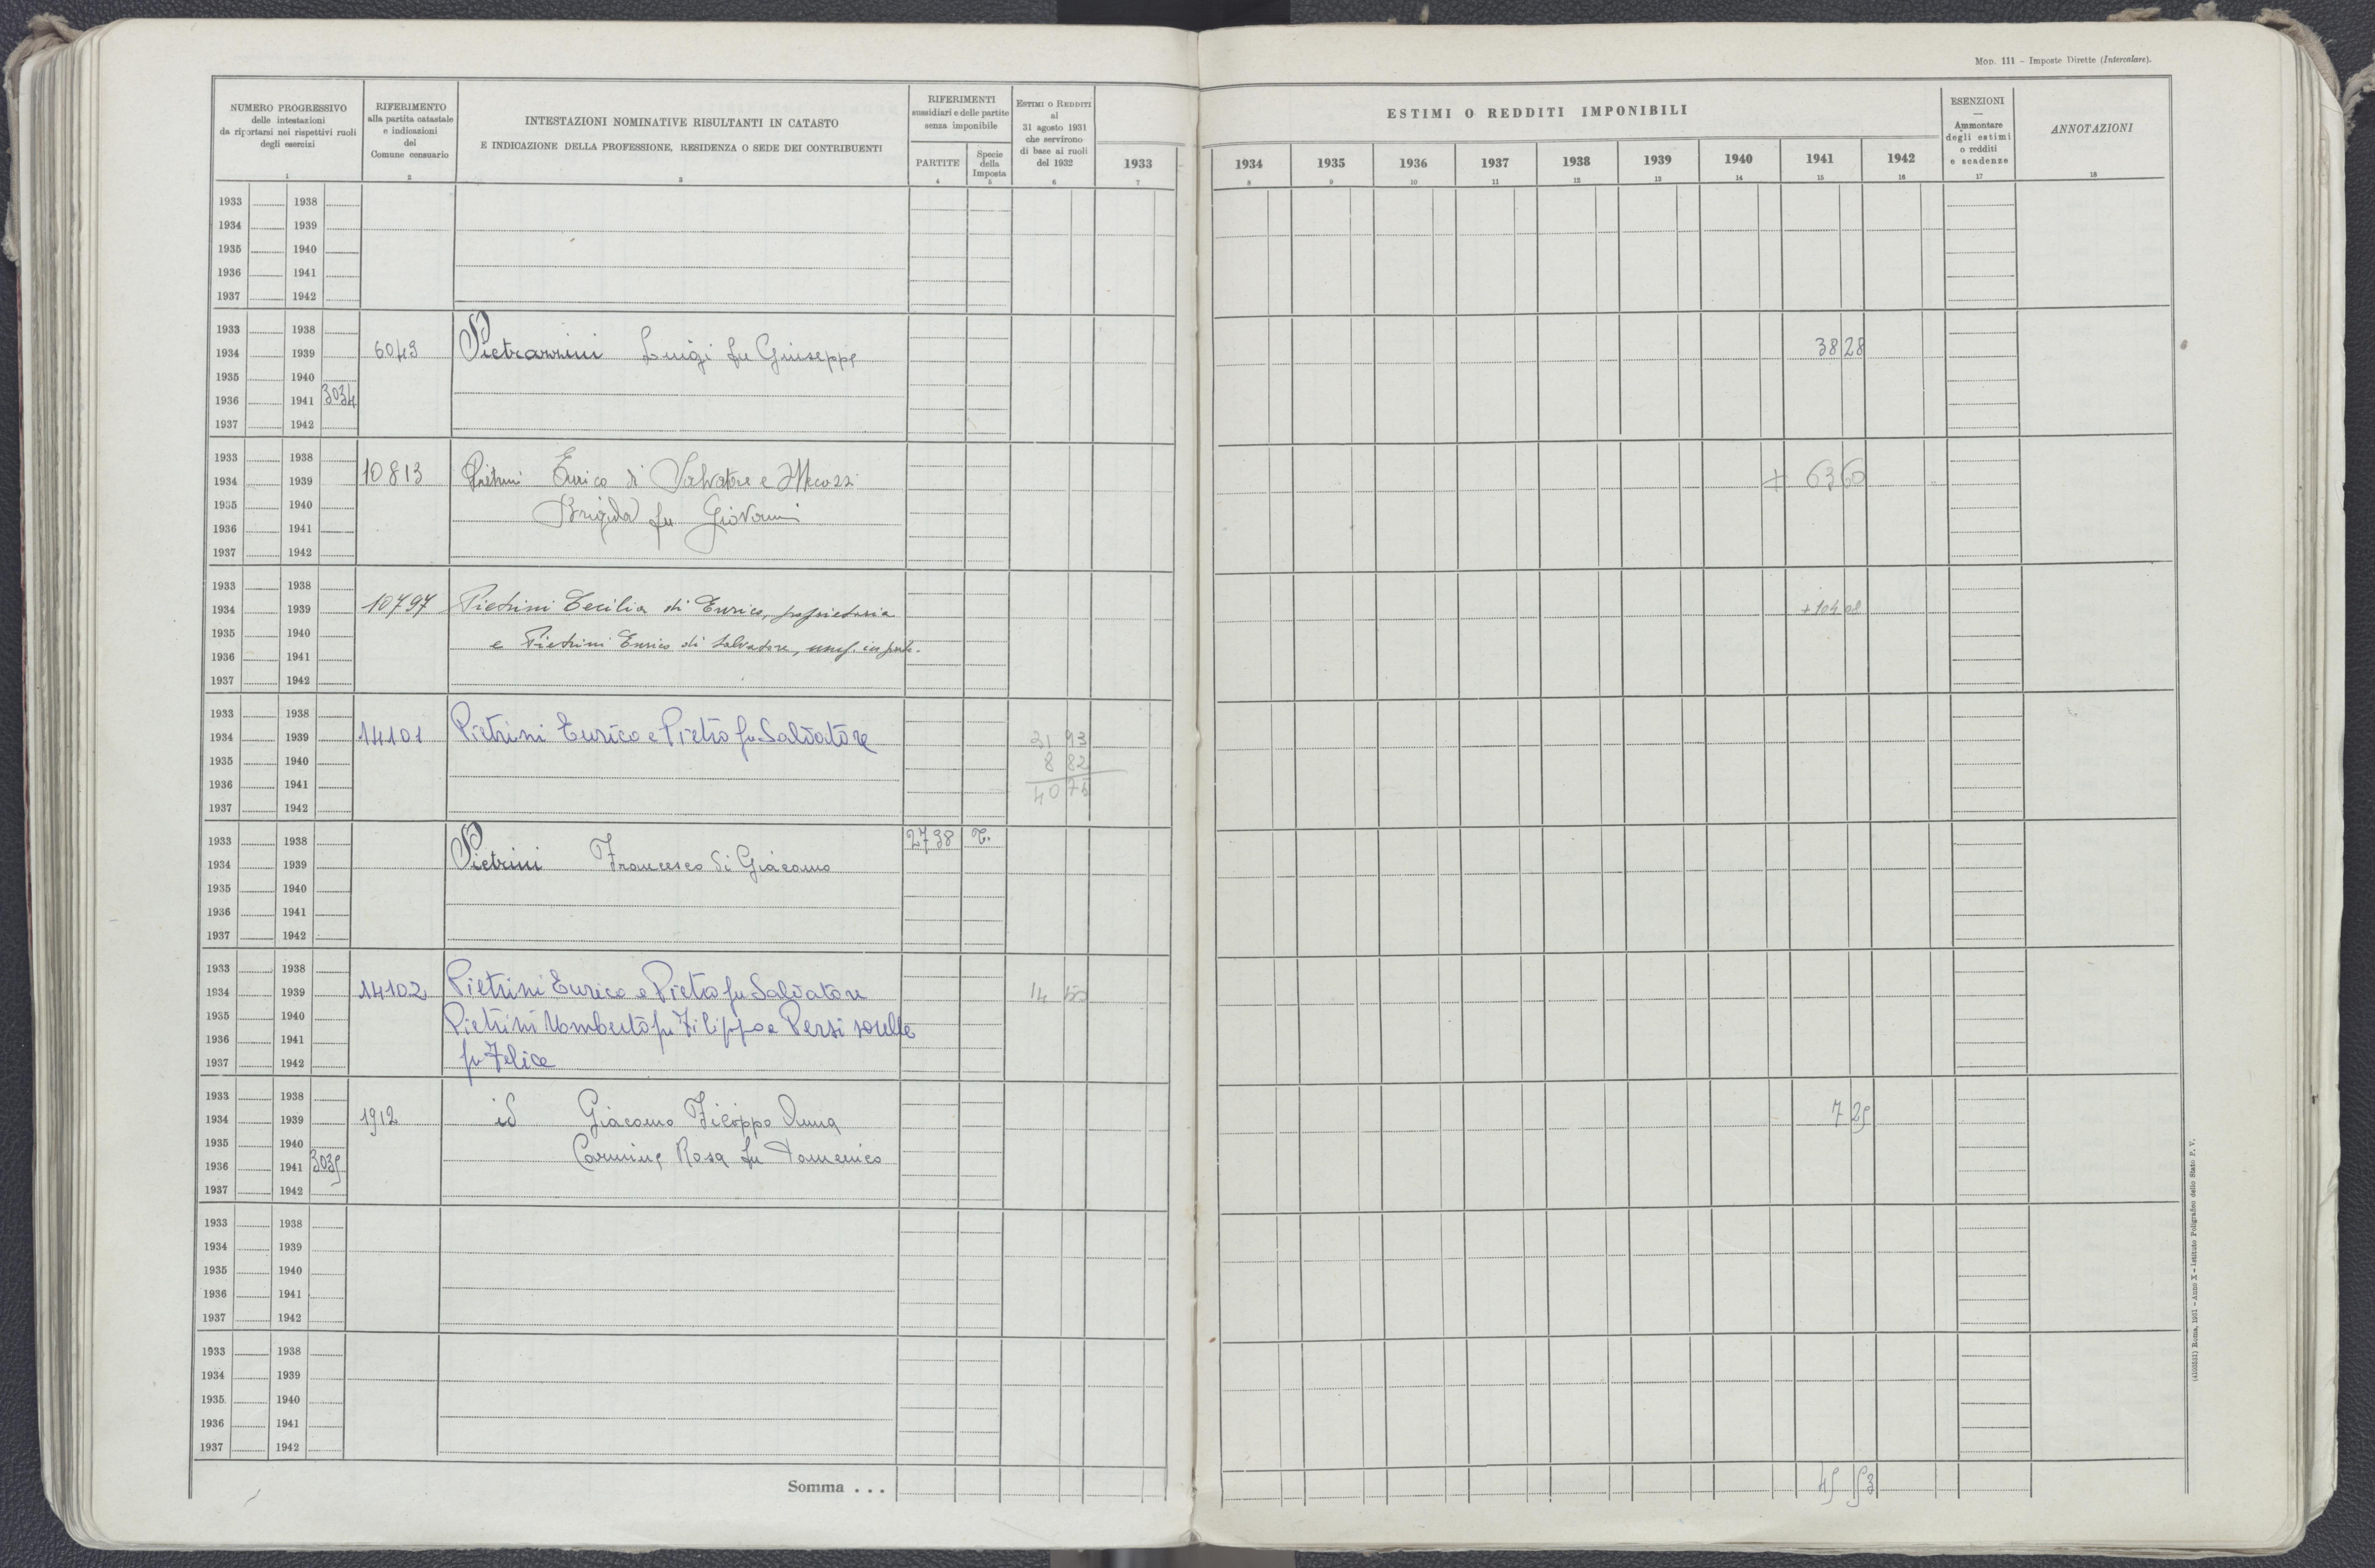 Mod. 111 - Imposte Dirette (Intercalare).
NUMERO PROGRESSIVO
delle intestazioni
da riportarsi nei rispettivi ruoli
degli esercizi
1
RIFERIMENTO
alla partita catastale
e indicazioni
del
Comune censuario
2
INTESTAZIONI NOMINATIVE RISULTANTI IN CATASTO
E INDICAZIONE DELLA PROFESSIONE, RESIDENZA O SEDE DEI CONTRIBUENTI
3
RIFERIMENTI
sussidiari e delle partite
senza imponibile
PARTITE
4
Specie
della
Imposta
5
ESTIMI O REDDITI
al
31 agosto 1931
che servirono
di base ai ruoli
del 1932
6
1933
7
ESTIMI O REDDITI IMPONIBILI
1934 1935 1936 1937 1938 1939 1940 1941 1942
8 9 10 11 12 13 14 15 16
ESENZIONI
—
Ammontare
degli estimi
o redditi
e scadenze
17
ANNOTAZIONI
18
1933 1938
1934 1939
1935 1940
1936 1941
1937 1942
1933 1938
1934 1939 6043 Pietrarini Luigi fu Giuseppe 38 28
1935 1940
1936 1941 3034
1937 1942
1933 1938
1934 1939 10813 Pietrini Enrico di Salvatore e Mecozzi + 63 60
1935 1940 Brigida fu Giovanni
1936 1941
1937 1942
1933 1938
1934 1939 10797 Pietrini Cecilia di Enrico, proprietaria + 104 08
1935 1940 e Pietrini Enrico di Salvatore, usuf. in parte.
1936 1941
1937 1942
1933 1938
1934 1939 14101 Pietrini Enrico e Pietro fu Salvatore 31 93
1935 1940 8 82
1936 1941 40 75
1937 1942
1933 1938 2738 T.
1934 1939 Pietrini Francesco di Giacomo
1935 1940
1936 1941
1937 1942
1933 1938
1934 1939 14102 Pietrini Enrico e Pietro fu Salvatore 14 50
1935 1940 Pietrini Umberto fu Filippo e Persi sorelle
1936 1941
1937 1942 fu Felice
1933 1938
1934 1939 1912 id Giacomo Filippo Anna 7 25
1935 1940 Carmine Rosa fu Domenico
1936 1941 3035
1937 1942
1933 1938
1934 1939
1935 1940
1936 1941
1937 1942
1933 1938
1934 1939
1935 1940
1936 1941
1937 1942
Somma . . . 45 53
(4103531) Roma, 1931 - Anno X - Istituto Poligrafico dello Stato P. V.